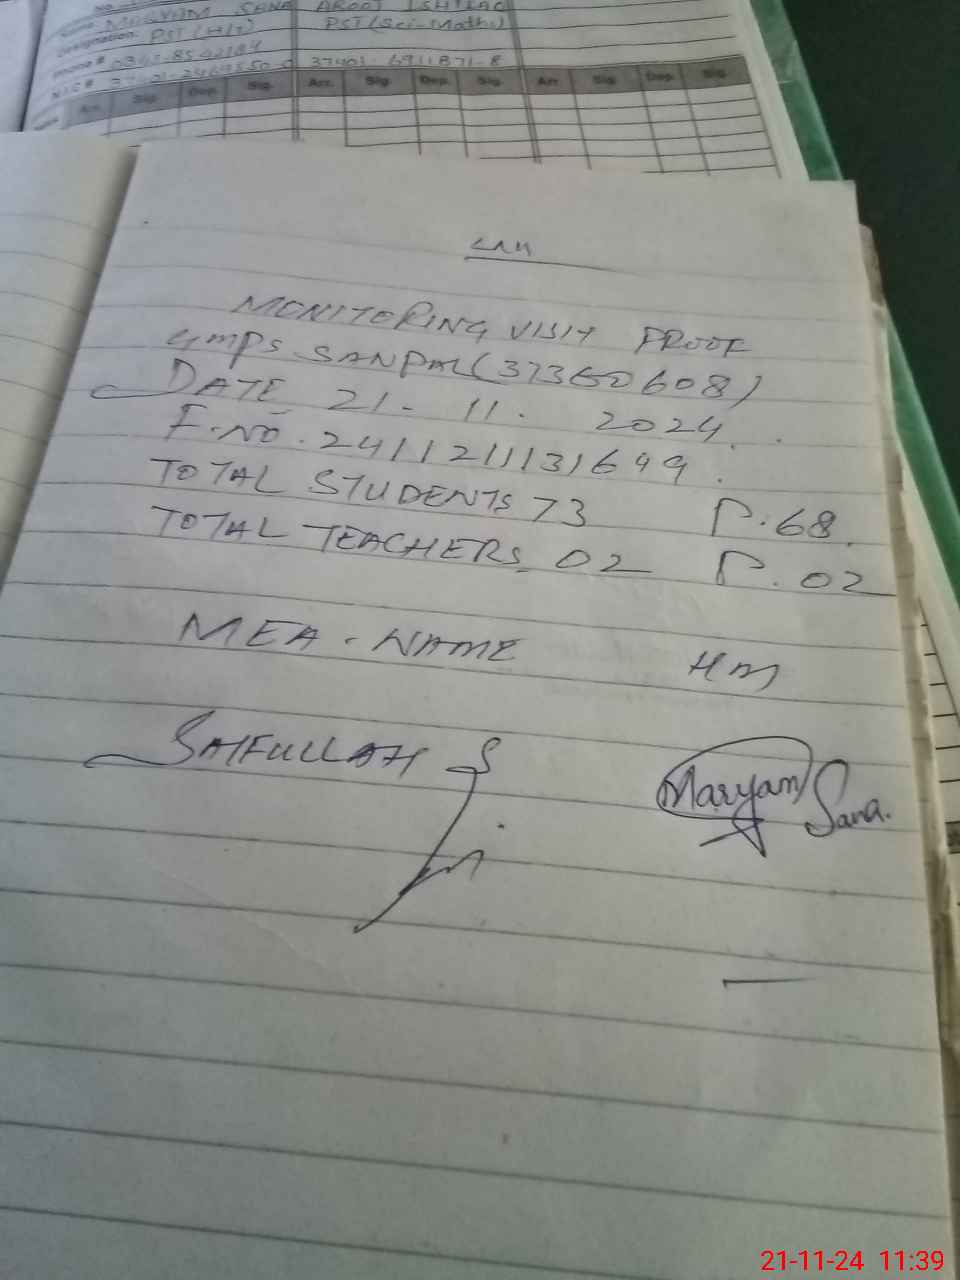 MARYAM SANA AROOJ ISHTIAQ
Designation: PST (H/T) PST (Sci-Maths)
Phone #
N.I.C # 37401-6911871-8
Arr. Sig. Dep. Sig. Arr. Sig. Dep. Sig. Arr. Sig. Dep. Sig.
MONITORING VISIT PROOF
GMPS SANPAL (37360608)
DATE 21-11-2024.
F.NO. 2411211131649.
TOTAL STUDENTS 73 P.68.
TOTAL TEACHERS 02 P.02
MEA. NAME HM
SAIFULLAH
Maryam Sana.
21-11-24 11:39